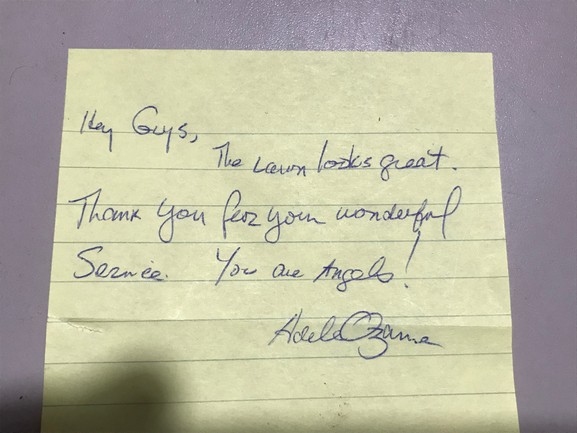 Hey Guys,
The Lawn looks great.
Thank you for your wonderful
Service. You are Angels!
Adela